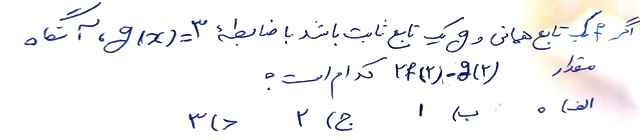 اگر f یک تابع همانی و g یک تابع ثابت باشد با ضابطهٔ g(x)=۳، آنگاه
مقدار ۲f(۲)-g(۲) کدام است:
الف) ۰ ب) ۱ ج) ۲ د) ۳